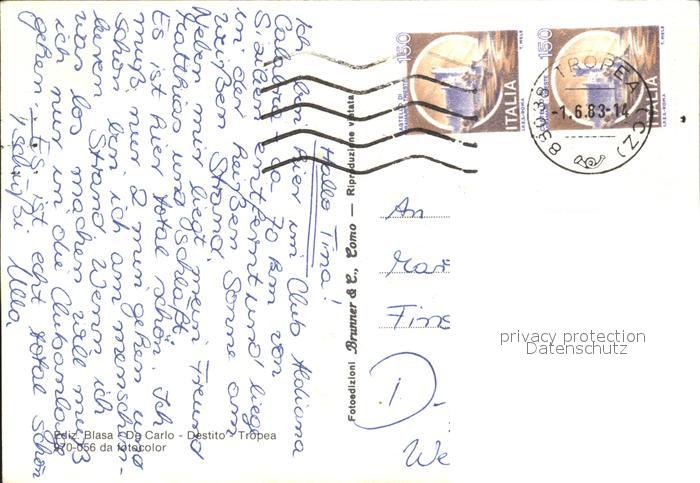 Hallo Tina!
Ich bin hier im Club Aldiana
Calabria - ca 70 km von
Sizilien entfernt und liege
in der heißen Sonne am
weißen Strand.
Neben mir liegt mein Freund
Matthias und schläft.
Es ist hier total schön. Ich
muß nur 2 min gehen und
schon bin ich am menschen-
leeren Strand. Wenn ich
was los machen will muß
ich nur in die Clubanlage
gehen. ES ist echt total schön
Tschüßi Ulla.
Ediz. Blasa - De Carlo - Destito - Tropea
970-056 da fotocolor
Fotoedizioni Brunner & C., Como — Riproduzione vietata
150
CASTELLO DI
ITALIA
T. MELE
I.P.Z.S.-ROMA
150
ITALIA
T. MELE
I.P.Z.S.-ROMA
TROPEA (CZ)
-1.6.83-14
An
Mar
Fins
D-
We
privacy protection
Datenschutz